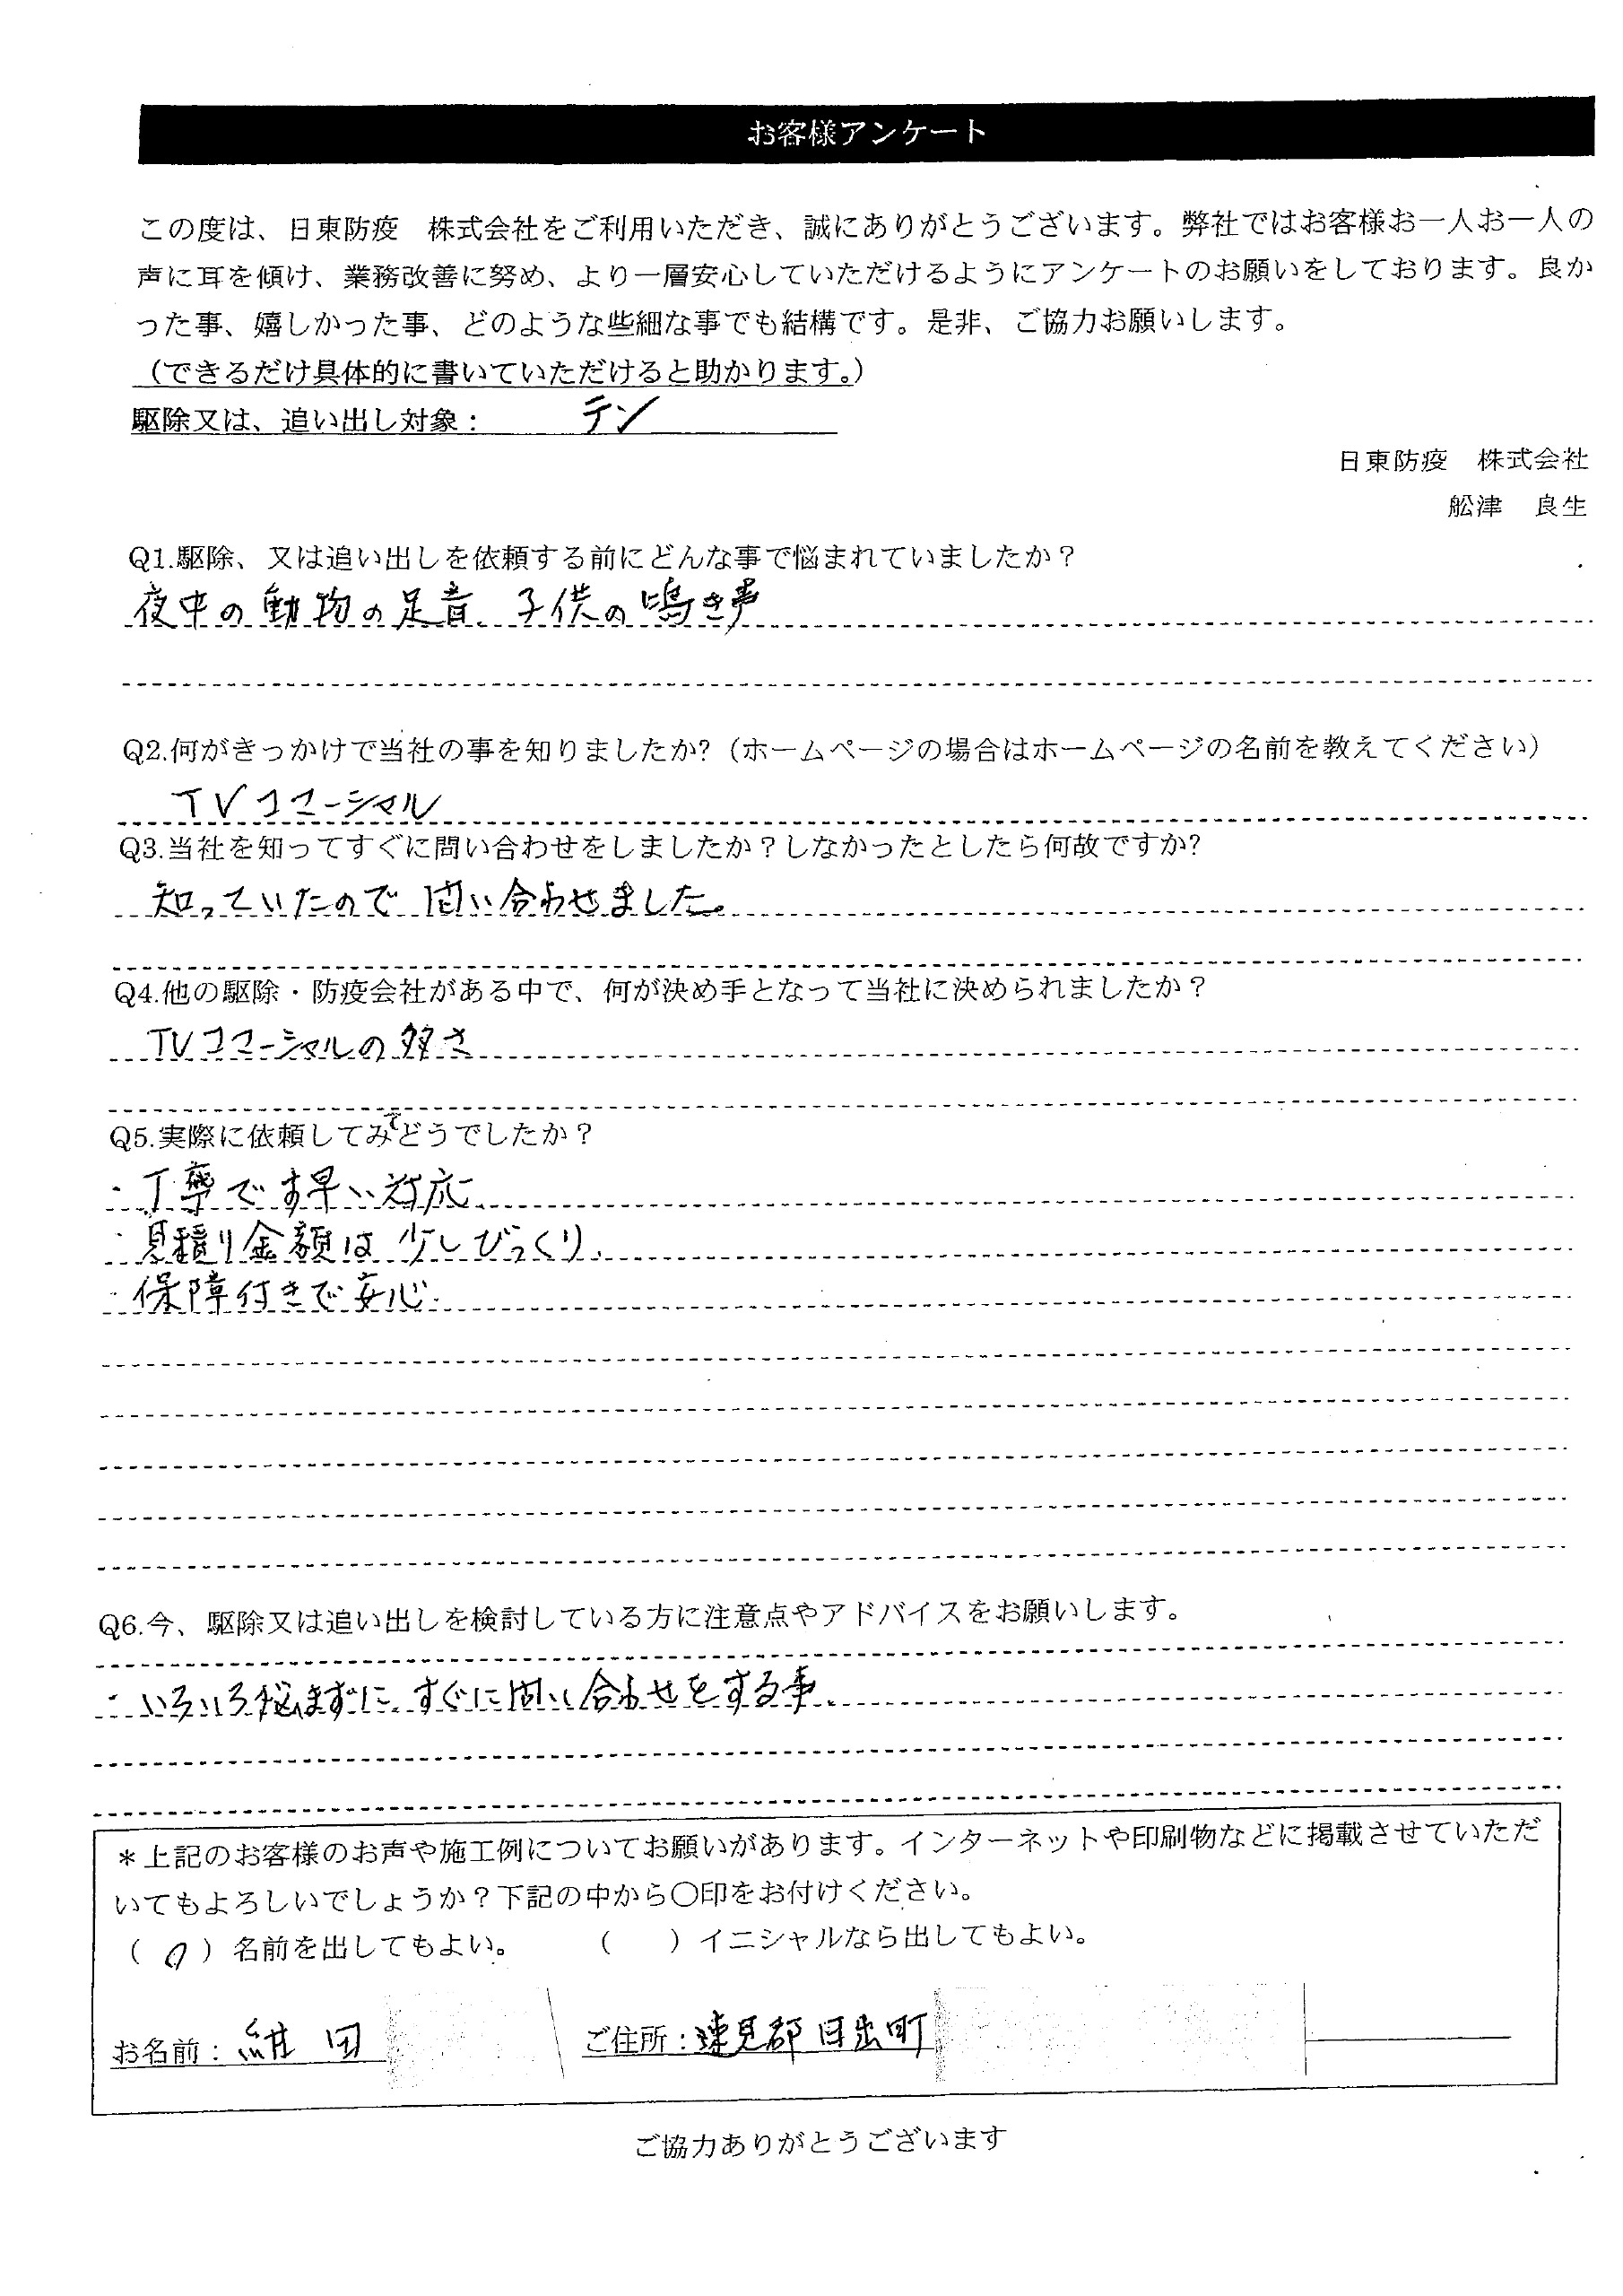 お客様アンケート
この度は、日東防疫　株式会社をご利用いただき、誠にありがとうございます。弊社ではお客様お一人お一人の
声に耳を傾け、業務改善に努め、より一層安心していただけるようにアンケートのお願いをしております。良か
った事、嬉しかった事、どのような些細な事でも結構です。是非、ご協力お願いします。
（できるだけ具体的に書いていただけると助かります。）
駆除又は、追い出し対象：　テン
日東防疫　株式会社
舩津　良生
Q1.駆除、又は追い出しを依頼する前にどんな事で悩まれていましたか？
夜中の動物の足音、子供の鳴き声
Q2.何がきっかけで当社の事を知りましたか?（ホームページの場合はホームページの名前を教えてください）
TVコマーシャル
Q3.当社を知ってすぐに問い合わせをしましたか？しなかったとしたら何故ですか?
知っていたので問い合わせました。
Q4.他の駆除・防疫会社がある中で、何が決め手となって当社に決められましたか？
TVコマーシャルの多さ
Q5.実際に依頼してみてどうでしたか？
・丁寧です早い対応
・見積り金額は少しびっくり、
・保障付きで安心
Q6.今、駆除又は追い出しを検討している方に注意点やアドバイスをお願いします。
・いろいろ悩まずに、すぐに問い合わせをする事、
＊上記のお客様のお声や施工例についてお願いがあります。インターネットや印刷物などに掲載させていただ
いてもよろしいでしょうか？下記の中から〇印をお付けください。
（ 〇 ）名前を出してもよい。　（　　）イニシャルなら出してもよい。
お名前：紺田　ご住所：速見郡日出町
ご協力ありがとうございます